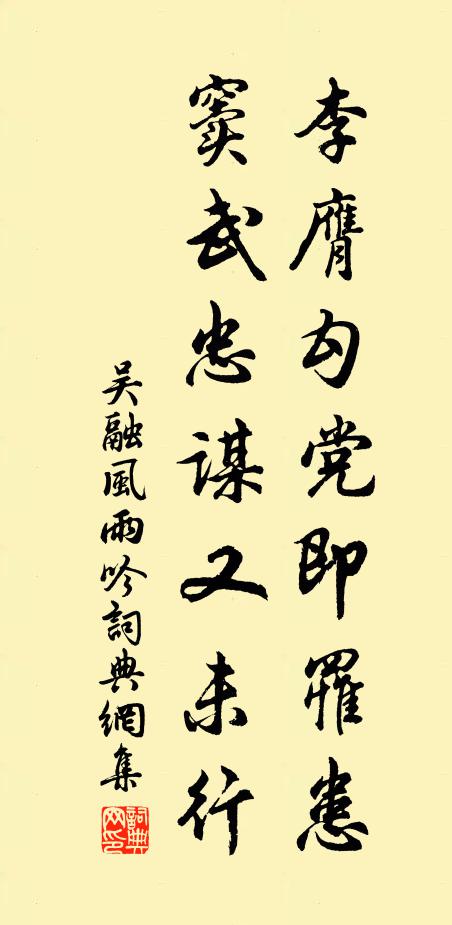 李膺勾党即罹患
窦武忠谋又未行
吴融風雨吟詞典網集
詞典網印